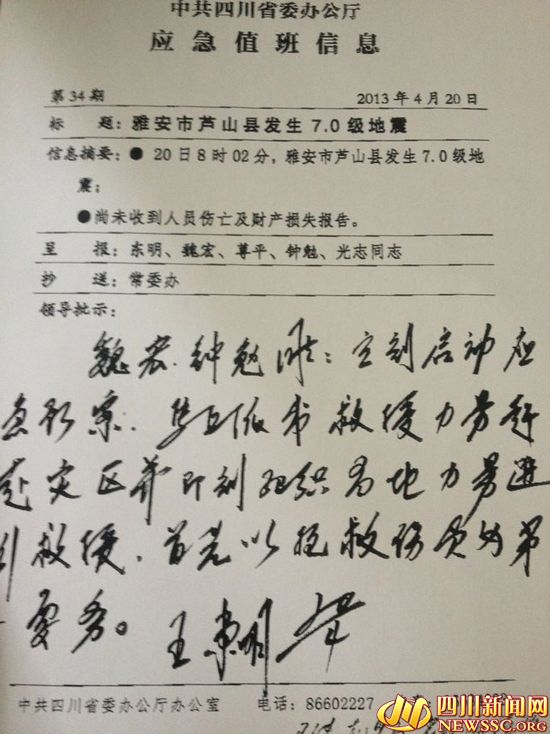 中共四川省委办公厅
应急值班信息
第34期 2013年4月20日
标 题：雅安市芦山县发生7.0级地震
信息摘要：● 20日8时02分，雅安市芦山县发生7.0级地
震；
●尚未收到人员伤亡及财产损失报告。
呈 报：东明、魏宏、尊平、钟勉、光志同志
抄 送：常委办
领导批示：
魏宏、钟勉 ：立刻启动应
急预案. 救援力量赶
赴灾区并即刻组织当地力量进
行救援，首先以抢救伤员为第
一要务。王东明
中共四川省委办公厅办公室 电话：86602227
四川新闻网
NEWSSC.ORG